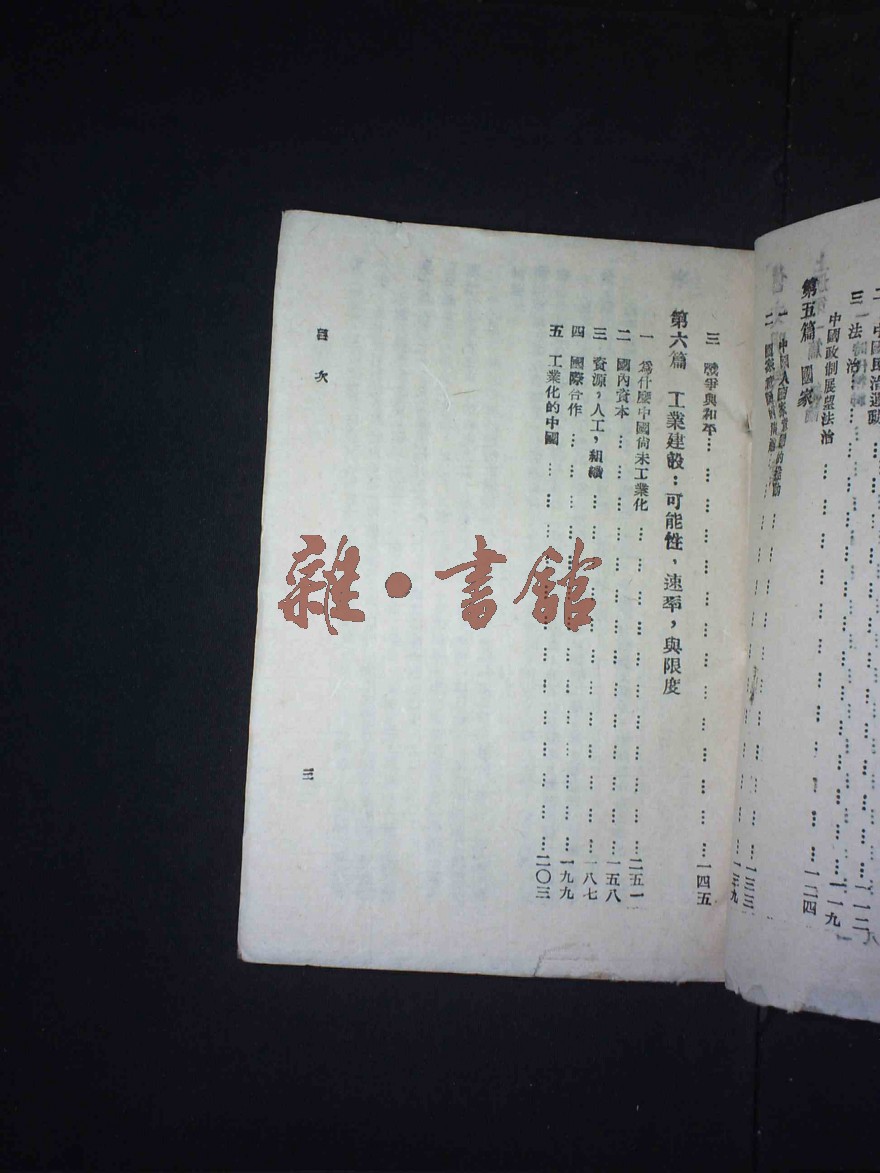 二 中國民治運動 … … … … … … … … 一一二
三 法治 … … … … … … … …
中國政制展望法治 … … … … … … … … 一一九
第五篇 國家 … … … … … … … 一二四
一 … … … … … … 一三三
二 … … … … … … 一三九
三 戰爭與和平 … … … … … … … … … … 一四五
第六篇 工業建設:可能性,速率,與限度
一 為什麼中國尚未工業化 … … … … … … … … … 二五一
二 國內資本 … … … … … … … … … … … 一五八
三 資源,人工,組織 … … … … … … … … … … 一八七
四 國際合作 … … … … … … … … … … … 一九九
五 工業化的中國 … … … … … … … … … … 二〇三
目次
三
雜·書館